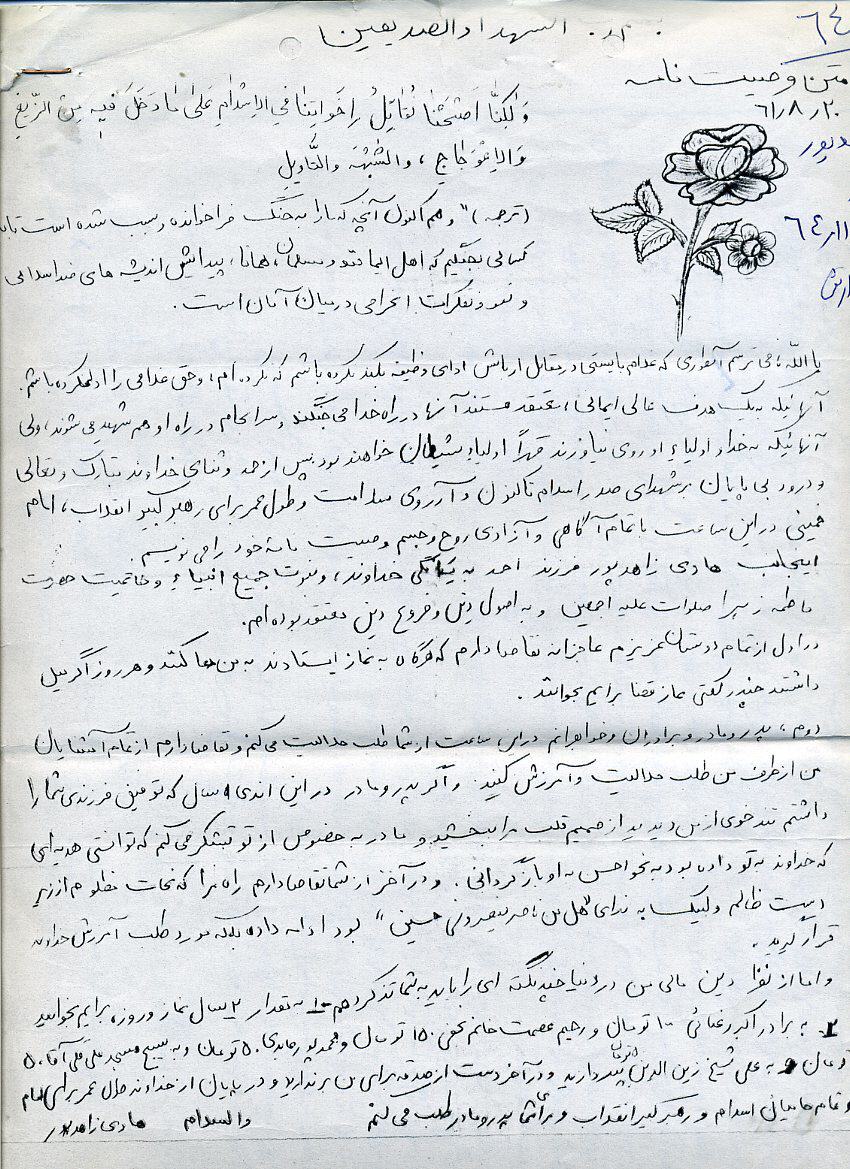 بسم رب الشهداء والصدیقین
٦٤
متن وصیت نامه
۶۱٫۸٫۲۰
وَلكِنَّا اَصبَحنا نُقاتِلُ اِخوانِنا فِي الاِسلامِ عَلى ما دَخَلَ فيهِ مِنَ الزَّيغِ
وَالاِعوِجاجِ ، والشُّبهَة والتَّأويلِ
(ترجمه) " و هم اکنون آنچه که ما را به جنگ فراخوانده و سبب شده است تا با
کسانی بجنگیم که اهل ایمانند و مسلمان، همانا، پیدایش اندیشه های ضد اسلامی
و نفوذ تفکرات انحرافی در میان آنان است .
یا اللّه می ترسم آنطوری که غلام بایستی در مقابل اربابش ادای وظیفه بکند نکرده باشم که نکرده ام، و حق غلامی را ادا نکرده باشم.
آنهائیکه به یک هدف عالی ایمانی، معتقد هستند آنها در راه خدا می جنگند و سرانجام در راه او هم شهید می شوند، ولی
آنهائیکه به خدا و اولیاء او روی نیاورند قهراً اولیاء شیطان خواهند بود پس از حمد و ثنای خداوند تبارک و تعالی
و درود بی پایان بر شهدای صدر اسلام تا کنون و آرزوی سلامت و طول عمر برای رهبر کبیر انقلاب، امام
خمینی در این ساعت با تمام آگاهی و آزادی روح و جسم وصیت نامه خود را می نویسم .
اینجانب هادی زاهدپور فرزند احمد به یگانگی خداوند، و نبوت جمیع انبیاء و خاتمیت حضرت
فاطمه زهرا صلوات علیه اجمعین و به اصول دین و فروع دین معتقد بوده ام.
در اول از تمام دوستان عزیزم عاجزانه تقاضا دارم که هرگاه به نماز ایستادند به من دعا کنند و هر روز اگر میل
داشتند چند رکعتی نماز قضا برایم بخوانند .
دوم، پدر و مادر و برادران و خواهرانم در این ساعت از شما طلب حلالیت می کنم و تقاضا دارم از تمام آشنایان
من از طرف من طلب حلالیت و آمرزش کنید. و اگر پدر و مادر در این اندی سال که توفیق فرزندی شما را
داشتم تند خوی از من دیدید از صمیم قلب مرا ببخشید و مادر به خصوص از تو تشکر می کنم که توانستی هدیه ای
که خداوند به تو داده بود به نحو احسن به او بازگردانی . و در آخر از شما تقاضا دارم راه مرا که نجات مظلوم از زیر
دست ظالم و لبیک به ندای هل من ناصر ینصرونی حسینی " بود ادامه داده بلکه مورد طلب آمرزش خداوند
قرار گیرید .
و اما از نظر دین مالی من در دنیا چند نکته ای را باید به شما تذکر دهم ۱- به مقدار ۲ سال نماز و روزه برایم بخوانید
۲- به برادر اکبر رعنائی ۱۰۰ تومان و رحیم عصمت خانم نجفی ۱۵۰ تومان و محمد پور عابدی ۵۰ تومان و به بسیج مسجد علی قلی آقا ۵۰
تومان و به علی شیخ زین الدین بپردازید و در آخر دست از صدقه برای من برندارید و در پایان از خداوند طول عمر برای امام
و تمام حامیان اسلام و رهبر کبیر انقلاب و برای شما پدر و مادر طلب می کنم والسلام هادی زاهدپور